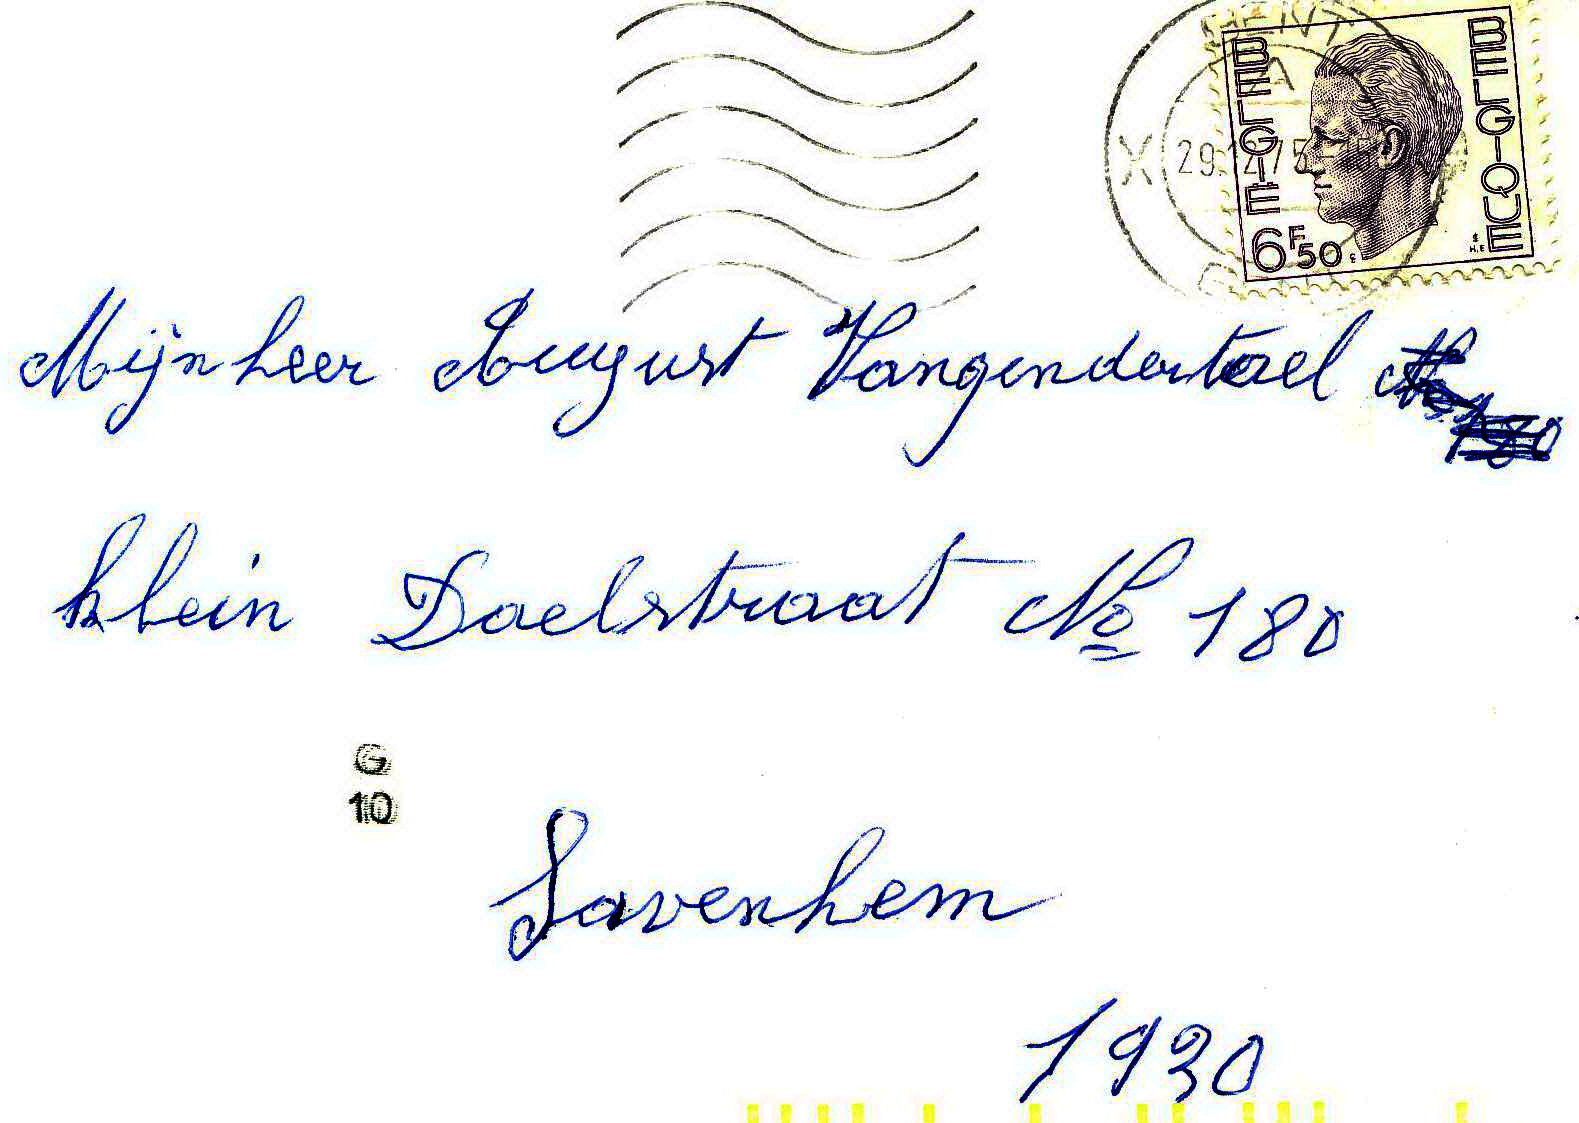 GENT
X 29.12.75
BELGIË BELGIQUE
6F50
Mijnheer August Vangendertael
klein Daelstraat No 180
G
10
Savenhem
1930